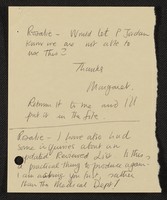 Rosalie - Would let P. Jordan
know we are not able to
use this?
Thanks
Margaret.
Return it to me and I'll
put it in the file
Rosalie - I have also had
some inquiries about an
updated Resource List. Is this
a practical thing to produce again
I am asking you first, rather
than the Medical Dept!